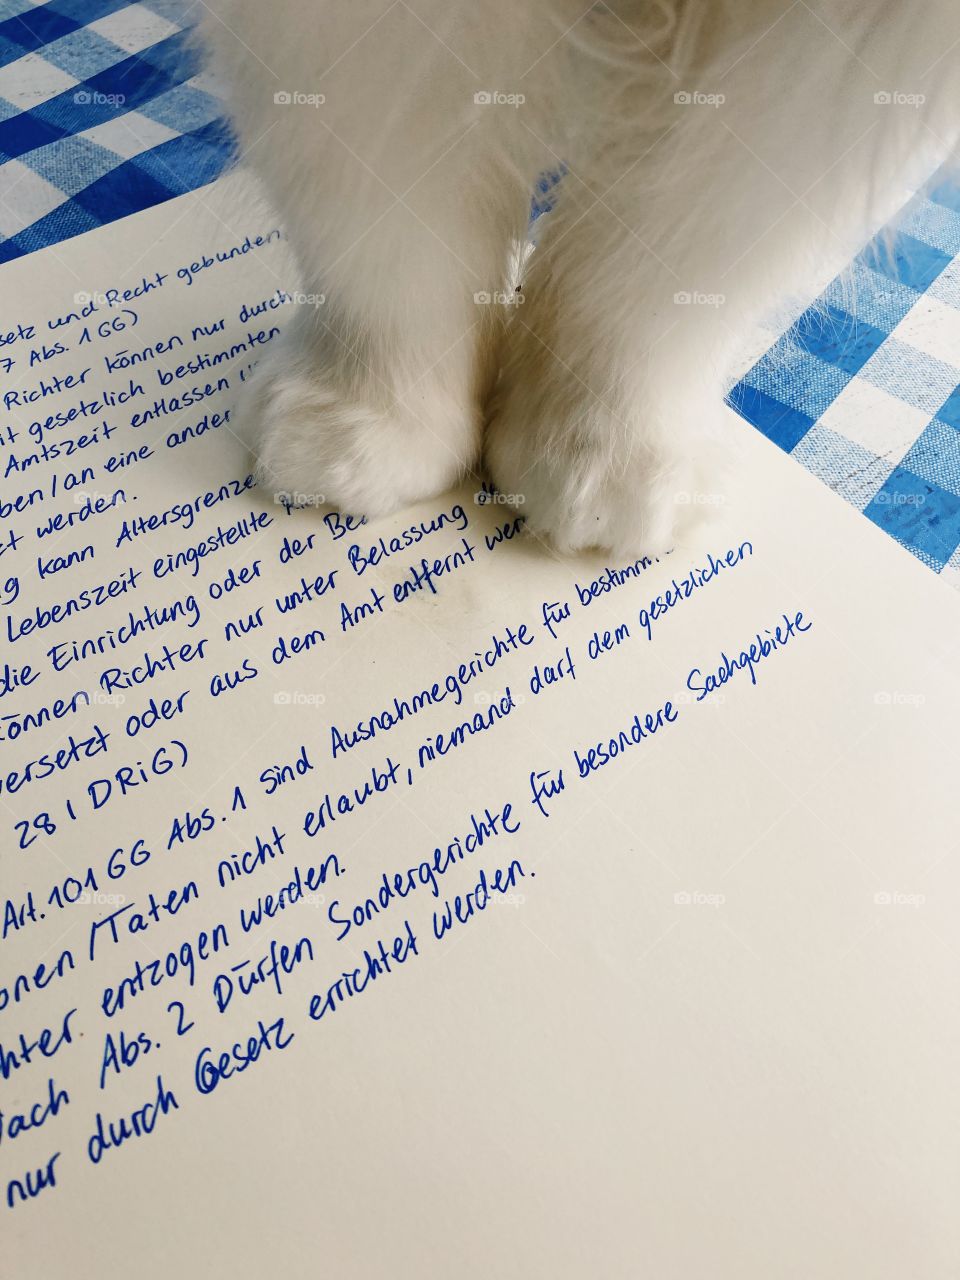 und Recht gebunden
7 Abs. 1 GG)
Richter können nur durch
gesetzlich bestimmten
Amtszeit entlassen
/an eine ander
werden.
kann Altersgrenze
Lebenszeit eingestellte
die Einrichtung oder der
können Richter nur unter Belassung
versetzt oder aus dem Amt entfernt
28 I DRiG)
Art. 101 GG Abs. 1 sind Ausnahmegerichte für bestimm
onen /Taten nicht erlaubt, niemand darf dem gesetzlichen
chter entzogen werden.
Nach Abs. 2 Dürfen Sondergerichte für besondere Sachgebiete
nur durch Gesetz errichtet werden.